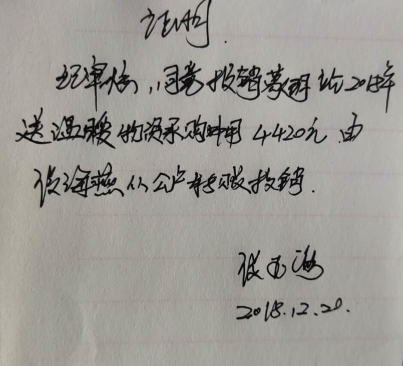 证明.
经审核,同意报销 2018年
送温暖物资采购费用4420元 由
海燕从公户转账报销.
2018.12.20.